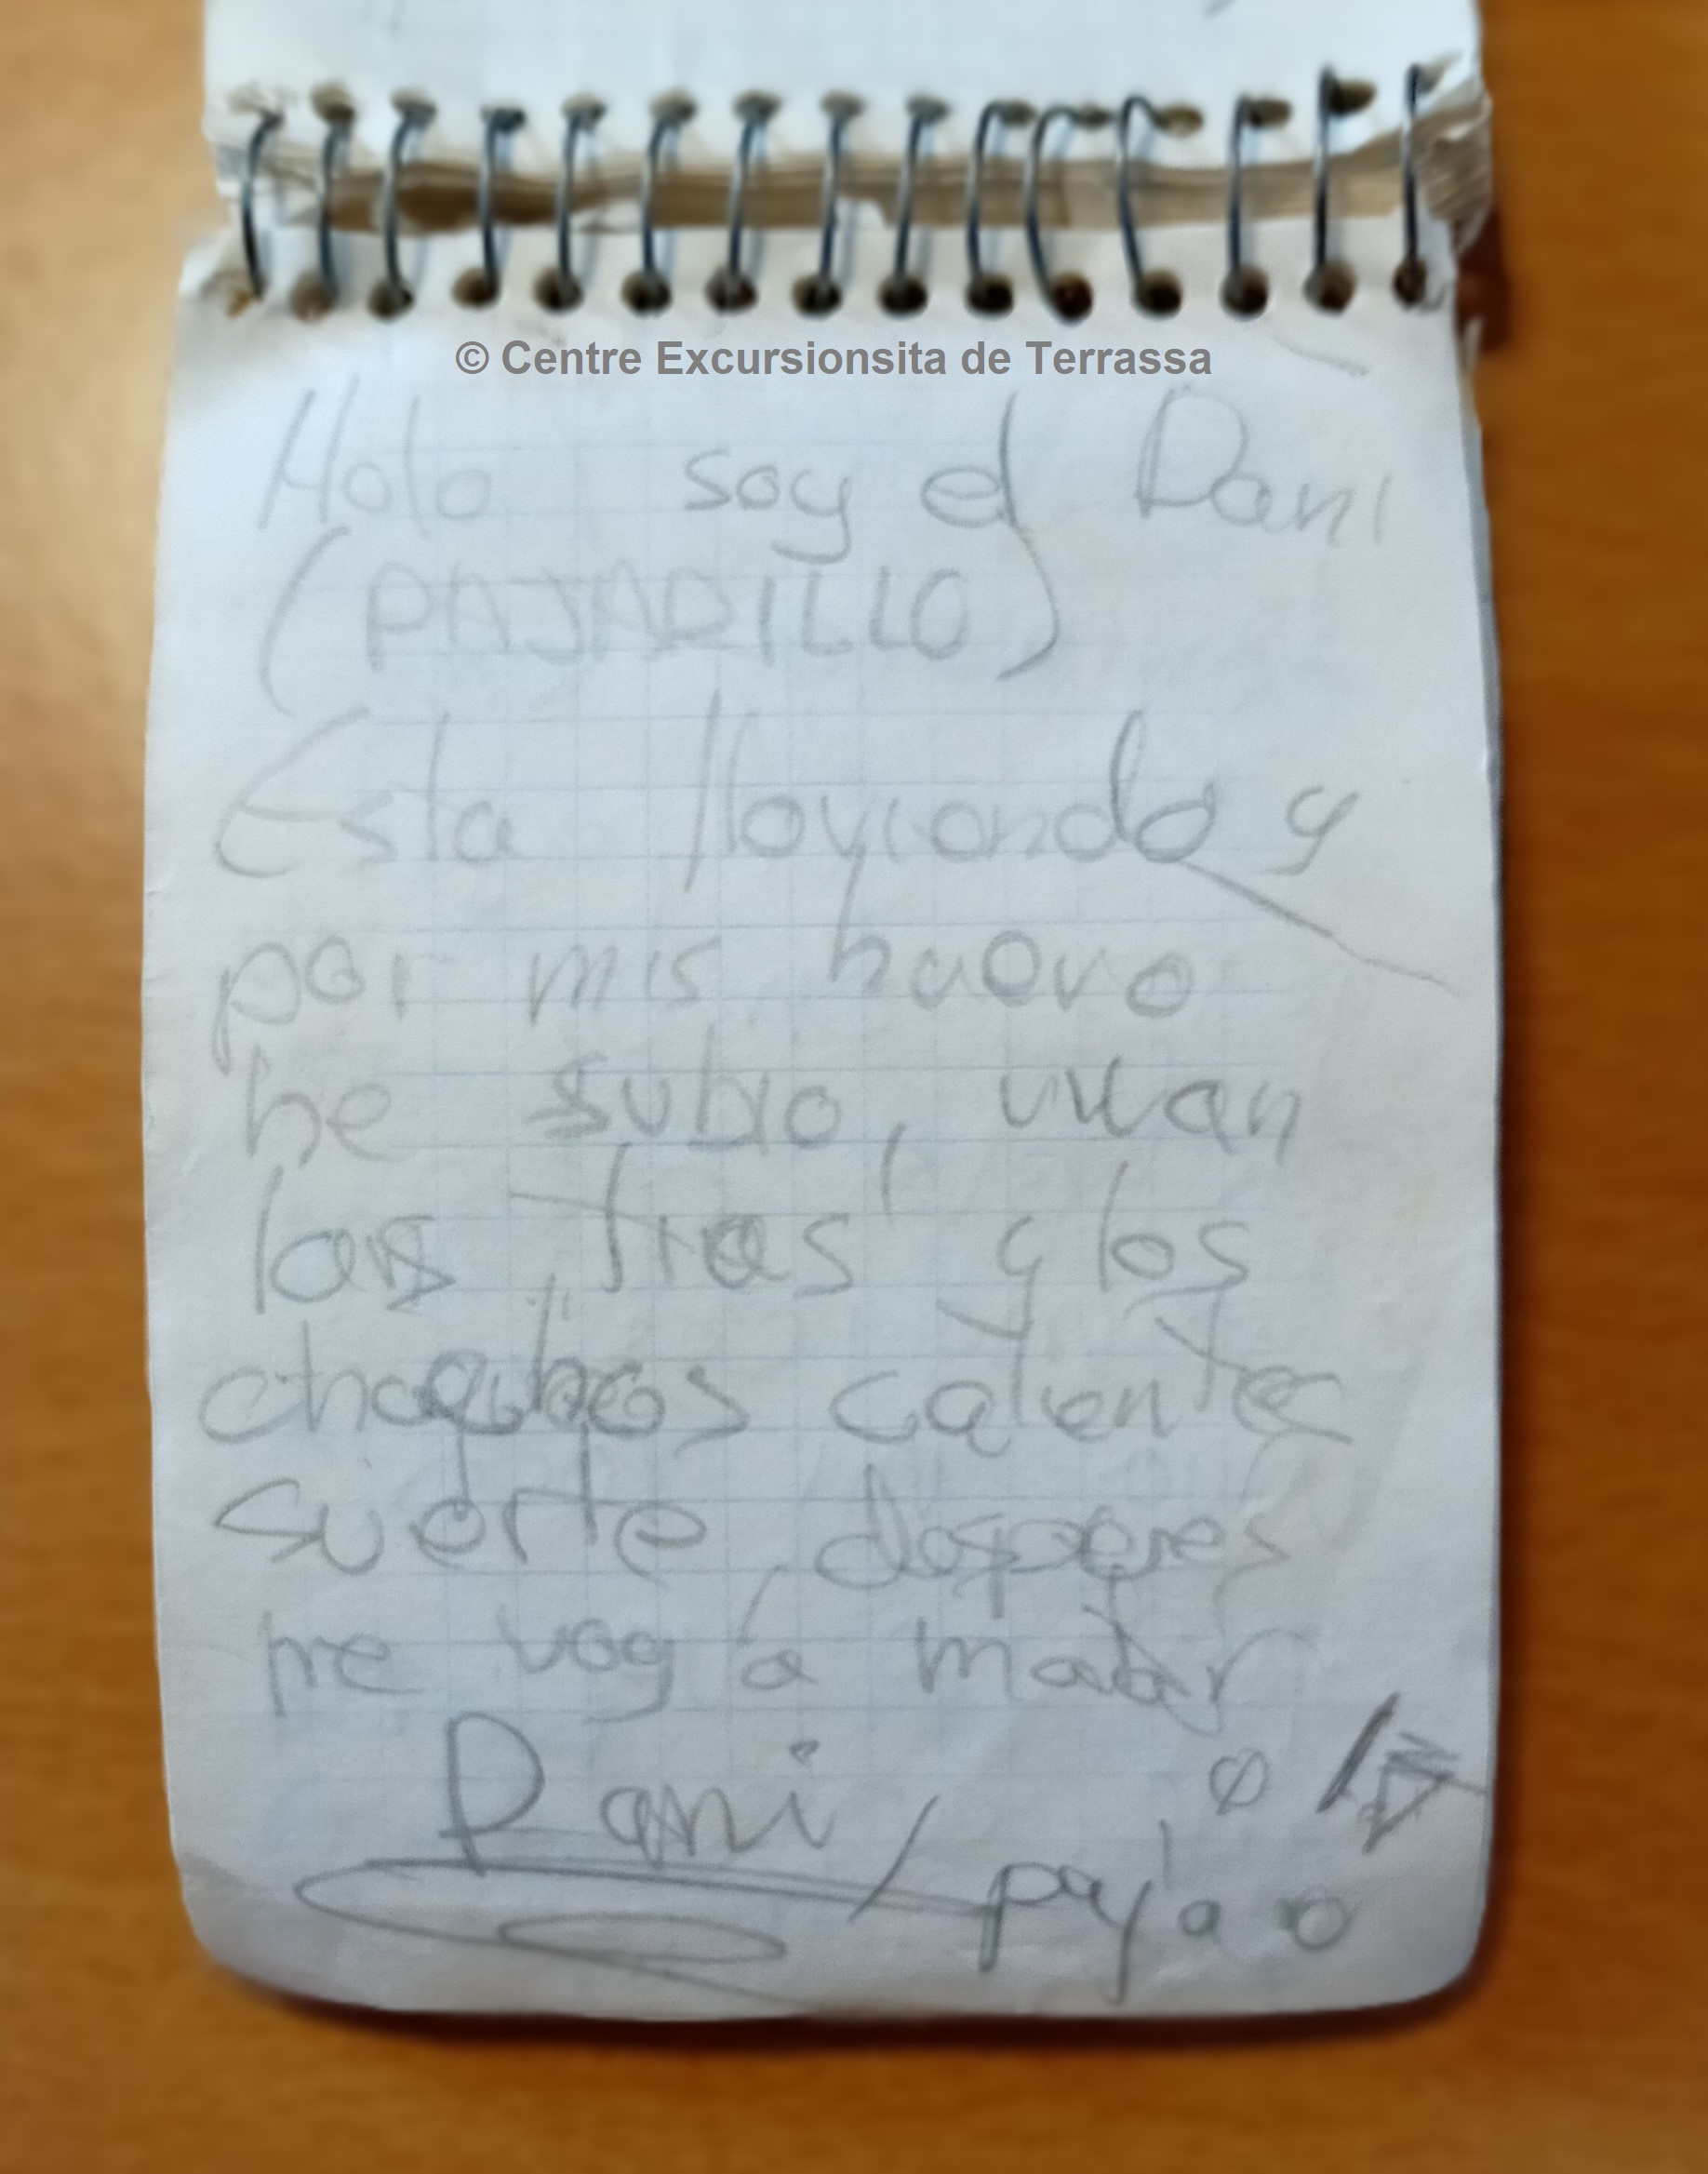 © Centre Excursionsita de Terrassa
Hola soy el Dani
(PAJARILLO)
Esta lloviendo y
por mis huevo
he subio, vivan
las tías y los
calientes
suerte, despues
me voy a matar
Dani / pájaro